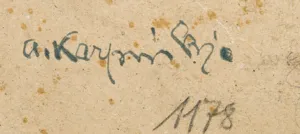 a. Karpiński
1178